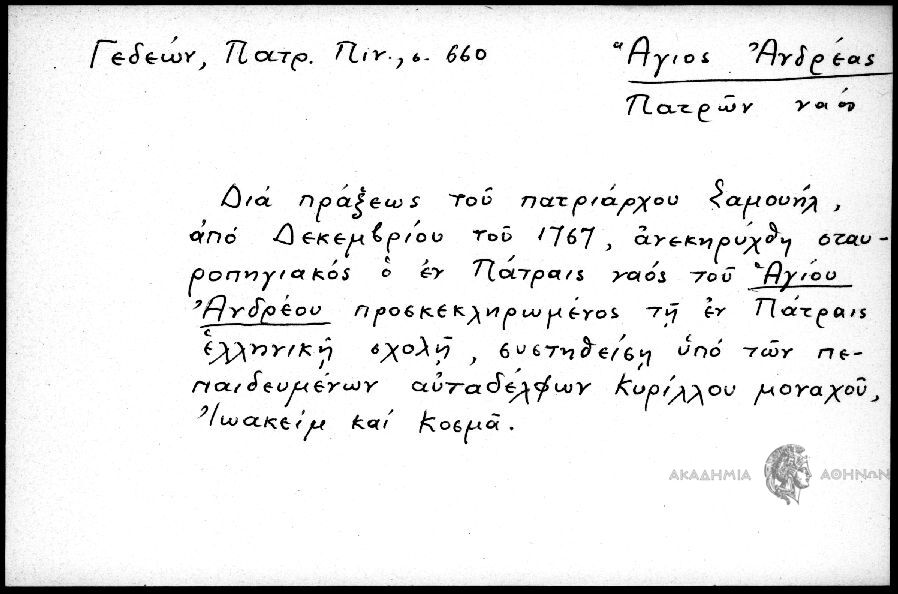 Γεδεών, Πατρ. Πιν., σ. 660
Ἅγιος Ἀνδρέας
Πατρῶν ναός
Διά πράξεως τοῦ πατριάρχου Σαμουήλ,
ἀπό Δεκεμβρίου τοῦ 1767, ἀνεκηρύχθη σταυ-
ροπηγιακός ὁ ἐν Πάτραις ναός τοῦ Ἁγίου
Ἀνδρέου προσκεκληρωμένος τῇ ἐν Πάτραις
ἑλληνικῇ σχολῇ, συστηθείσῃ ὑπό τῶν πε-
παιδευμένων αὐταδέλφων Κυρίλλου μοναχοῦ,
Ἰωακείμ καί Κοσμᾶ.
ΑΚΑΔΗΜΙΑ ΑΘΗΝΩΝ